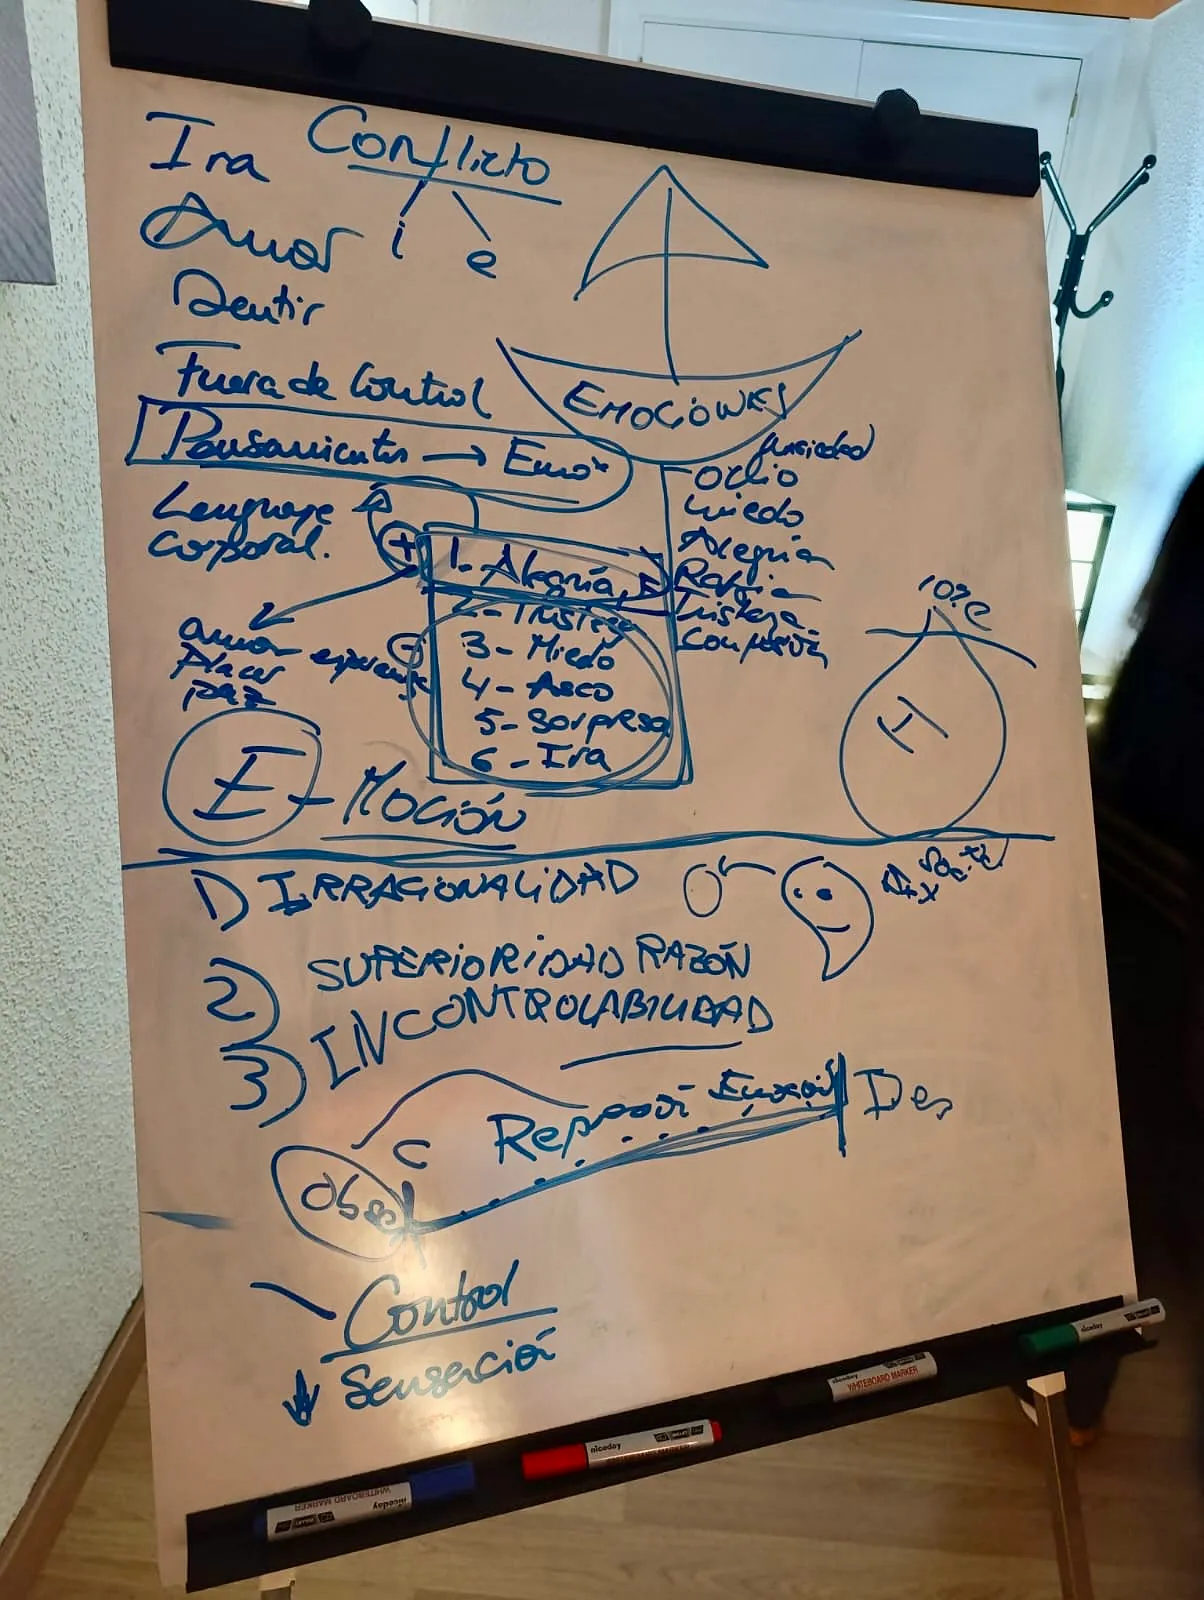 Ira
Conflicto
i
e
Amor
Sentir
Fuera de control
Pensamientos → Emoº
Lenguaje
corporal.
EMOCIONES
Ansiedad
- Odio
Miedo
Alegría
Rabia
Tristeza
Compasión
+
1- Alegría
2- Tristeza
3- Miedo
4- Asco
5- Sorpresa
6- Ira
-
amor
esperanza
Placer
paz
10% C
I
E - MOCIÓN
1) IRRACIONALIDAD
2) SUPERIORIDAD RAZÓN
3) INCONTROLABILIDAD
C
Represión Emoción
Des
Control
↓ Sensación
niceday
WHITEBOARD MARKER
niceday
WHITEBOARD MARKER
niceday
niceday
WHITEBOARD MARKER